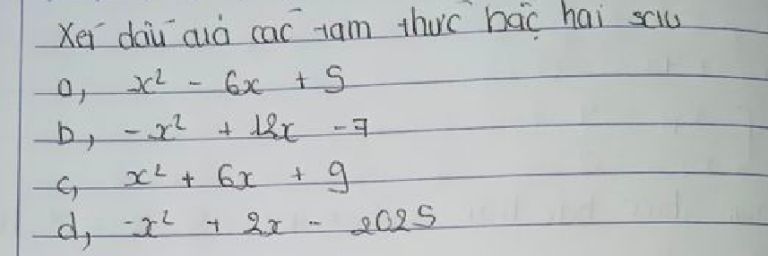 Xét dấu của các tam thức bậc hai sau
a, x² - 6x + 5
b, -x² + 12x - 7
c, x² + 6x + 9
d, -x² + 2x - 2025